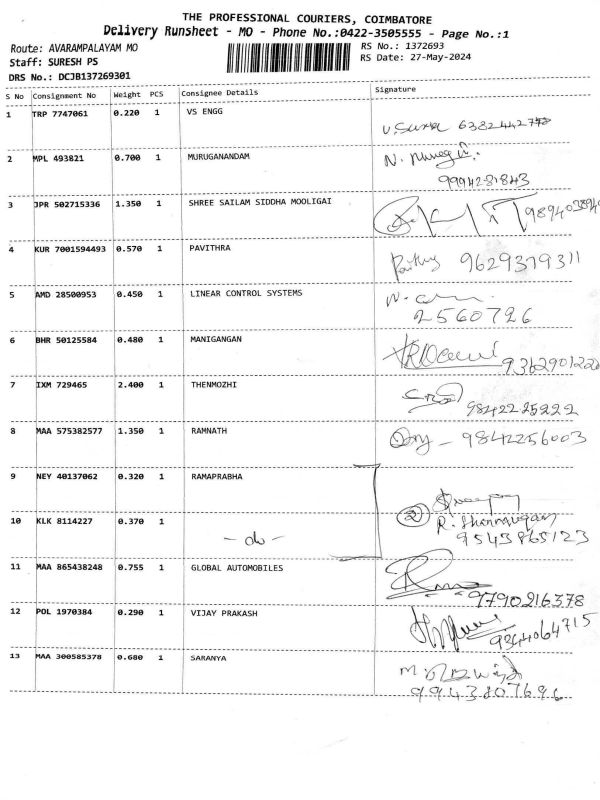 THE PROFESSIONAL COURIERS, COIMBATORE
Delivery Runsheet - MO - Phone No.:0422-3505555 - Page No.:1
Route: AVARAMPALAYAM MO
Staff: SURESH PS
DRS No.: DCJB137269301
RS No.: 1372693
RS Date: 27-May-2024
S No Consignment No Weight PCS Consignee Details Signature
1 TRP 7747061 0.220 1 VS ENGG
6382442778
2 MPL 493821 0.700 1 MURUGANANDAM
9994281843
3 JPR 502715336 1.350 1 SHREE SAILAM SIDDHA MOOLIGAI
4 KUR 7001594493 0.570 1 PAVITHRA
9629379311
5 AMD 28500953 0.450 1 LINEAR CONTROL SYSTEMS
2560726
6 BHR 50125584 0.480 1 MANIGANGAN
7 IXM 729465 2.400 1 THENMOZHI
9842225222
8 MAA 575382577 1.350 1 RAMNATH
9842256003
9 NEY 40137062 0.320 1 RAMAPRABHA
10 KLK 8114227 0.370 1 - do -
2
R. Shanmugam
9543865123
11 MAA 865438248 0.755 1 GLOBAL AUTOMOBILES
9790216378
12 POL 1970384 0.290 1 VIJAY PRAKASH
9344064715
13 MAA 300585378 0.680 1 SARANYA
9943807696